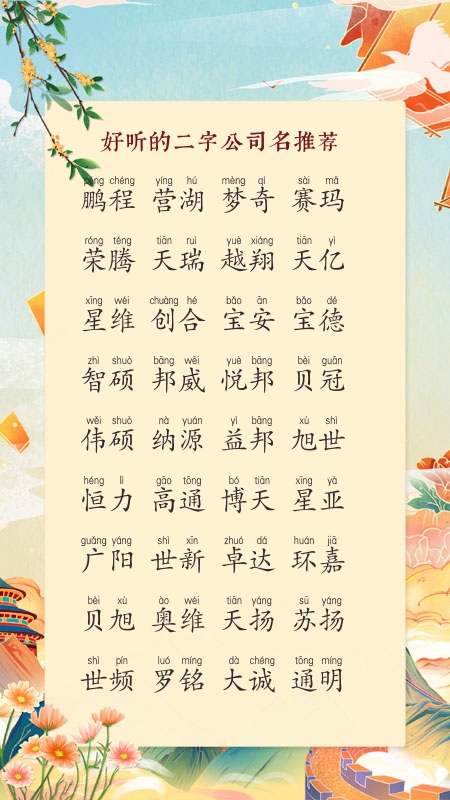 好听的二字公司名推荐
péng chéng yíng hú mèng qí sài mǎ
鹏程 营湖 梦奇 赛玛
róng téng tiān ruì yuè xiáng tiān yì
荣腾 天瑞 越翔 天亿
xīng wéi chuàng hé bǎo ān bǎo dé
星维 创合 宝安 宝德
zhì shuò bāng wēi yuè bāng bèi guān
智硕 邦威 悦邦 贝冠
wěi shuò nà yuán yì bāng xù shì
伟硕 纳源 益邦 旭世
héng lì gāo tōng bó tiān xīng yà
恒力 高通 博天 星亚
guǎng yáng shì xīn zhuó dá huán jiā
广阳 世新 卓达 环嘉
bèi xù ào wéi tiān yáng sū yáng
贝旭 奥维 天扬 苏扬
shì pín luó míng dà chéng tōng míng
世频 罗铭 大诚 通明